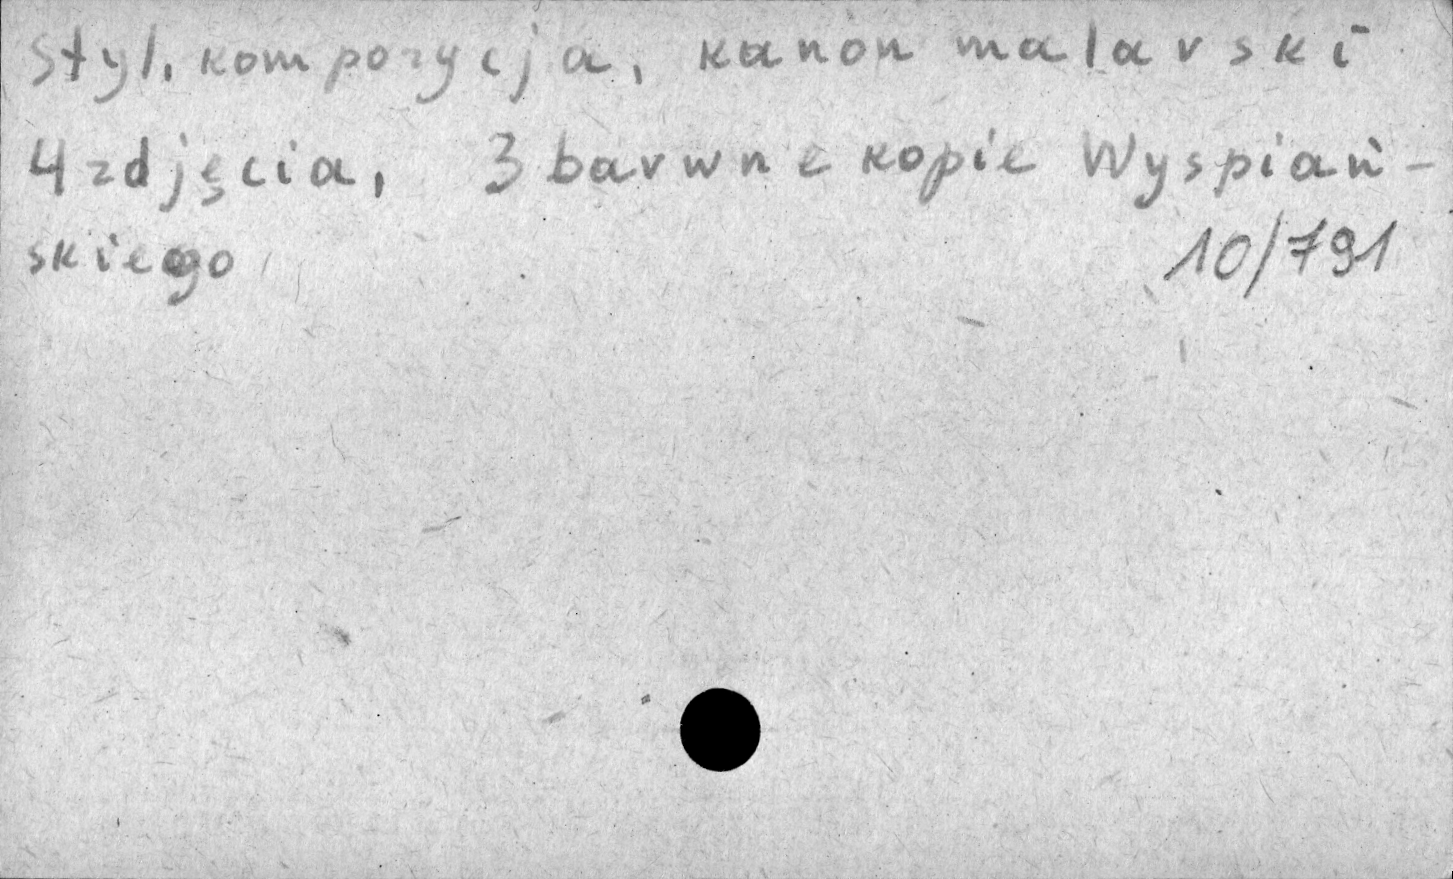 Styl, kompozycja, kanon malarski
4 zdjęcia, 3 barwne kopie Wyspiań-
skiego
10/791